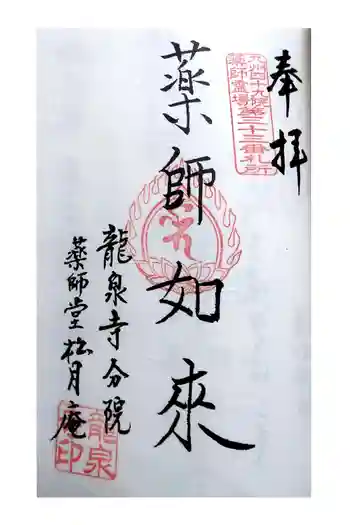 奉拝
九州四十九院
薬師霊場第三十三番札所
薬師如來
龍泉寺分院
薬師堂松月庵
龍泉
印